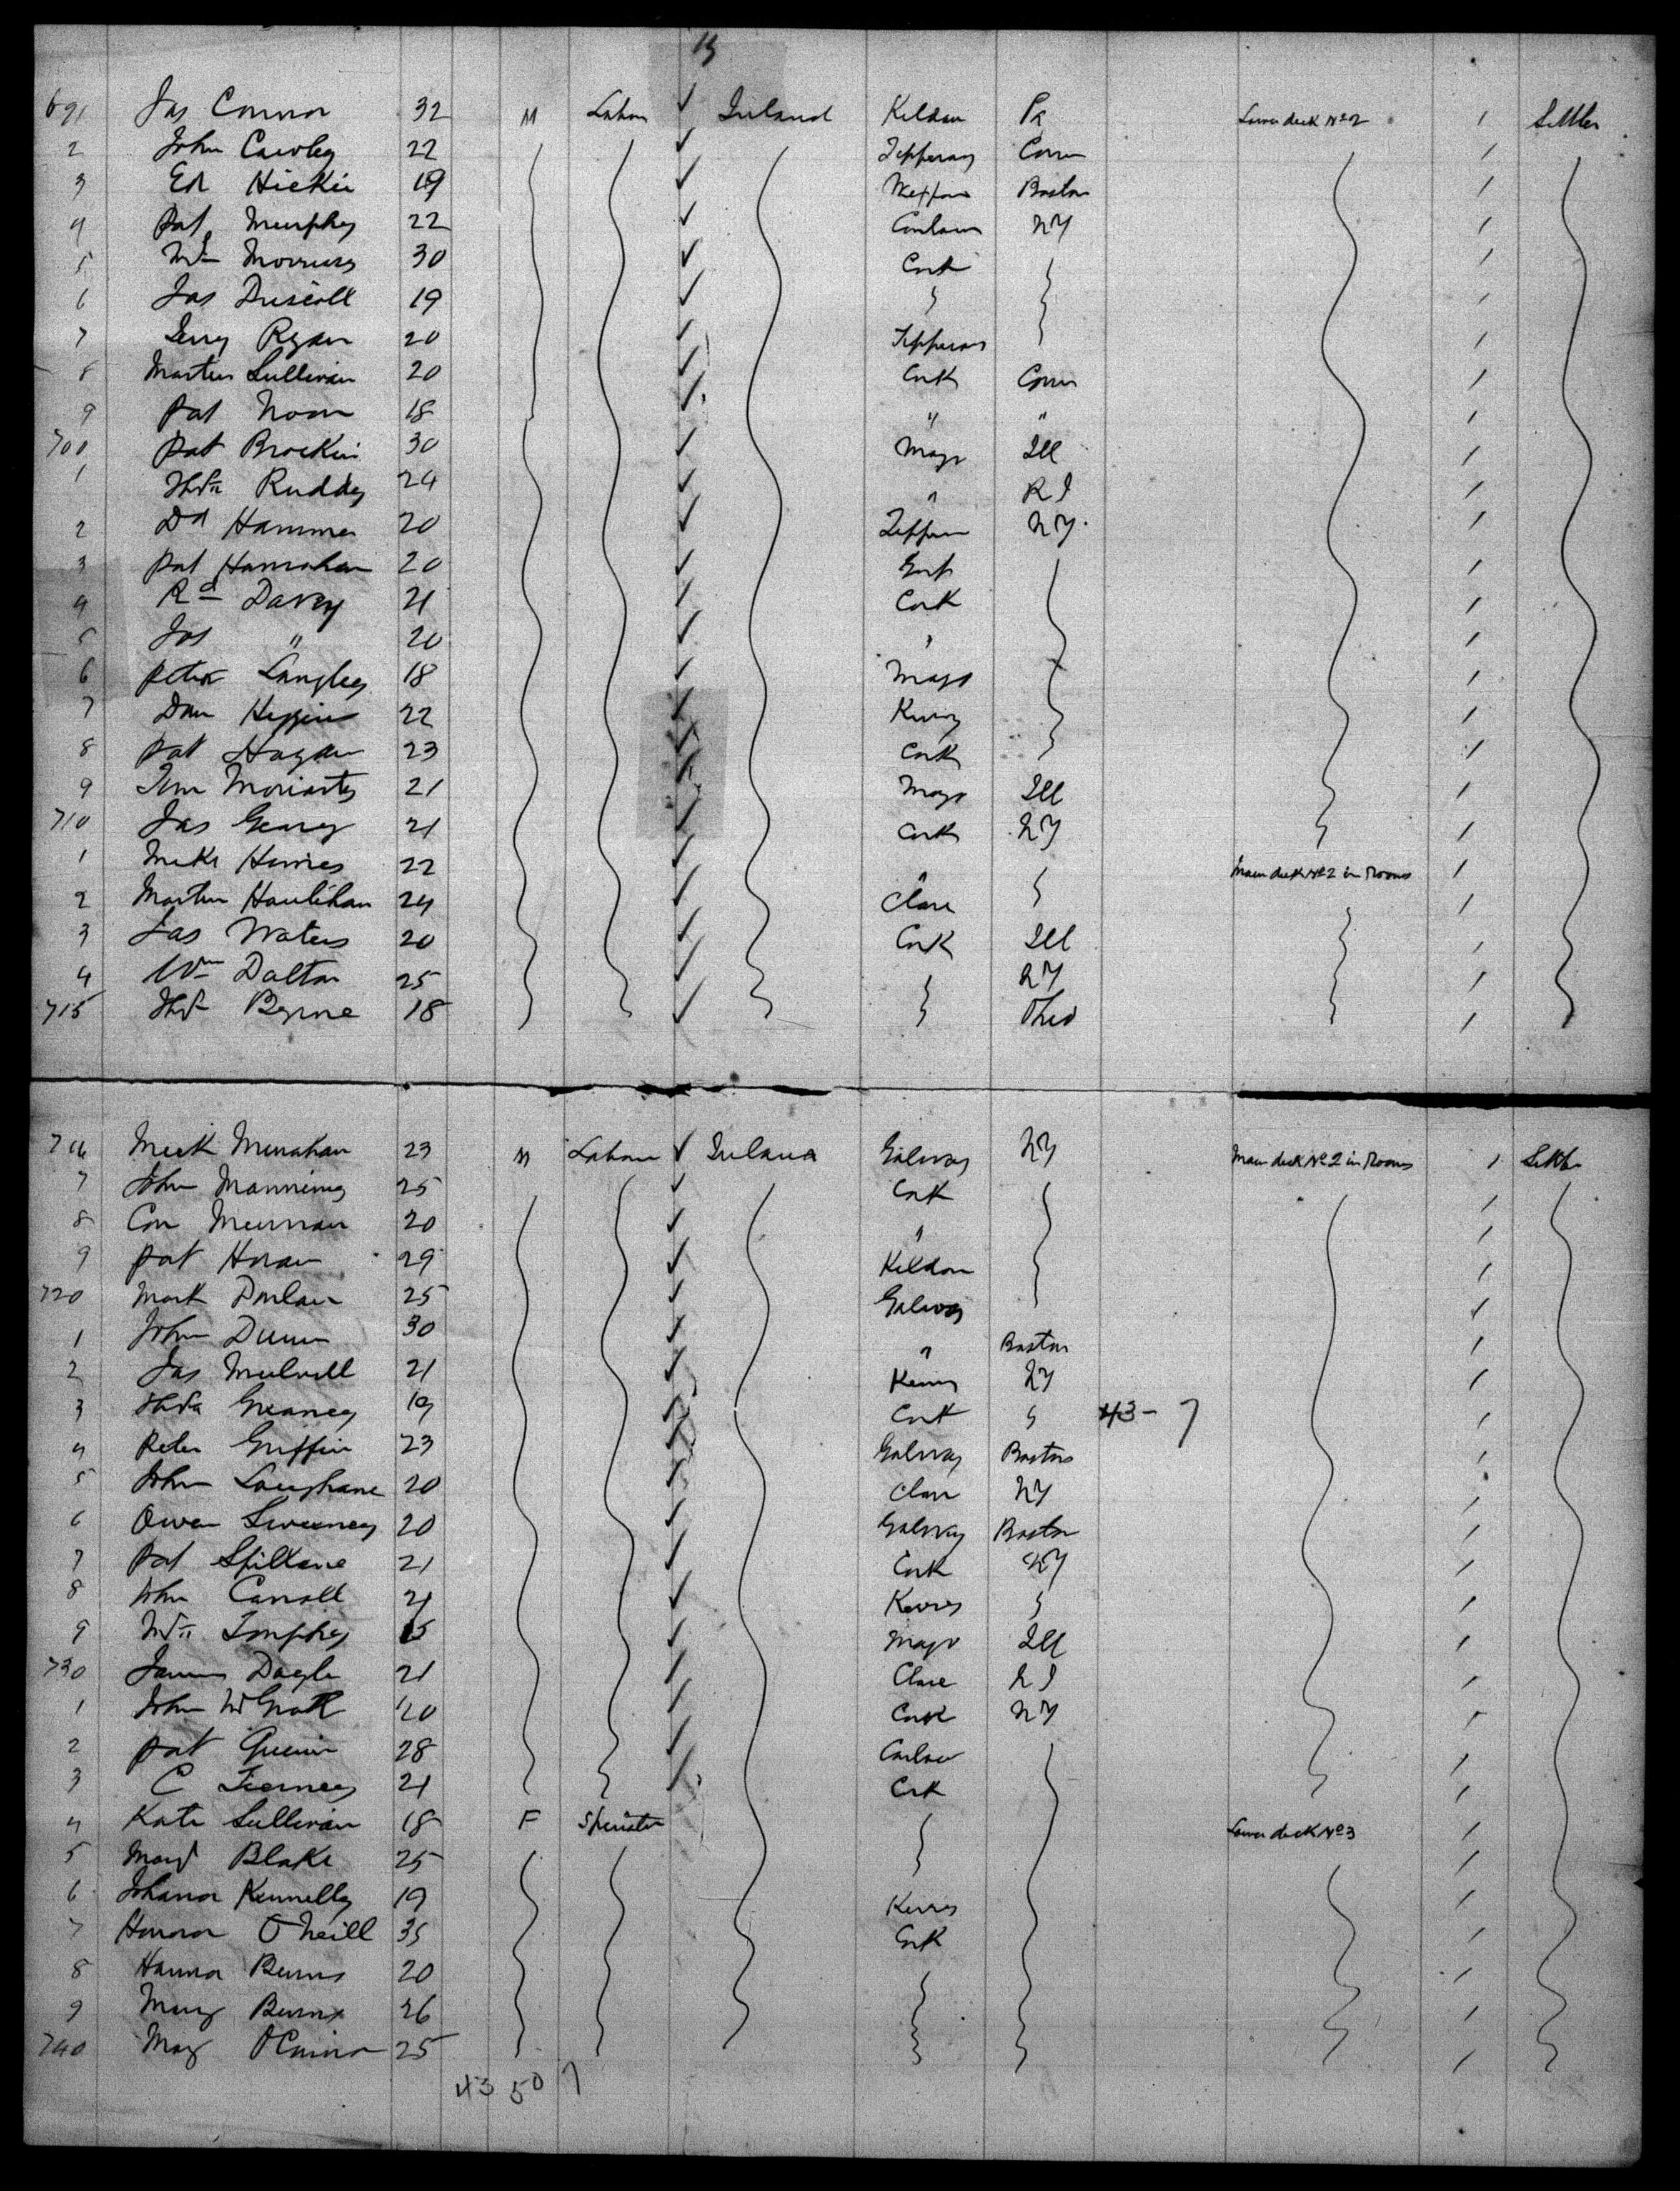 691 Jas Connor 32 M Labor Ireland Kildare Pa Lower deck No 2 / Settler
2 John Cawley 22 Tipperary Conn /
3 Ed Hickie 19 Wexford Boston /
4 Pat Murphy 22 Carlow NY /
5 Wm Morrissy 30 Cork /
6 Jas Driscoll 19 /
7 Jerry Ryan 20 Tipperary /
8 Martin Sullivan 20 Cork Conn /
9 Pat Noon 18 " " /
700 Pat Brockin 30 Mayo Ill /
1 Thos Ruddy 24 " R I /
2 Dd Hammer 20 Tipper NY /
3 Pat Hanrahan 20 /
4 Rd Davey 21 Cork /
5 Jas " 20 " /
6 Peter Langley 18 Mayo /
7 Dan Higgins 22 Kerry /
8 Pat Hagan 23 Cork /
9 Tim Moriarty 21 Mayo Ill /
710 Jas Geary 21 Cork NY /
1 Mike 22 " Main deck No 2 in Rooms /
2 Martin Houlihan 24 Clare /
3 Jas Waters 20 Cork Ill /
4 Wm Dalton 25 NY /
715 Thos Byrne 18 Ohio /
716 Mick Monahan 23 M Labour Ireland Galway NY Main deck No 2 in Rooms / Settler
7 John Manning 25 Cork /
8 Con 20 " /
9 Pat Horan 29 Kildare /
720 Mark Donlan 25 Galway /
1 John Dunn 30 " Boston /
2 Jas Mulvill 21 Kerry NY /
3 Thos Greaney 19 Cork 43- 7 /
4 Peter Griffin 23 Galway Boston /
5 John Loughnane 20 Clare NY /
6 Owen Sweeney 20 Galway Boston /
7 Pat Spillane 21 Cork NY /
8 John Carroll 21 Kerry /
9 Wm 25 Mayo Ill /
730 James Doyle 21 Clare R I /
1 John McGrath 20 Cork NY /
2 Pat 28 Carlow /
3 C Tierney 21 Cork /
4 Kate Sullivan 18 F Spinster Lower deck No 3 /
5 Mary Blake 25 /
6 Johanna Kennelly 19 Kerry /
7 Honora O'Neill 35 Cork /
8 Hanna Burns 20 /
9 Mary Burns 26 /
740 Mary O'Connor 25 /
43 50 7